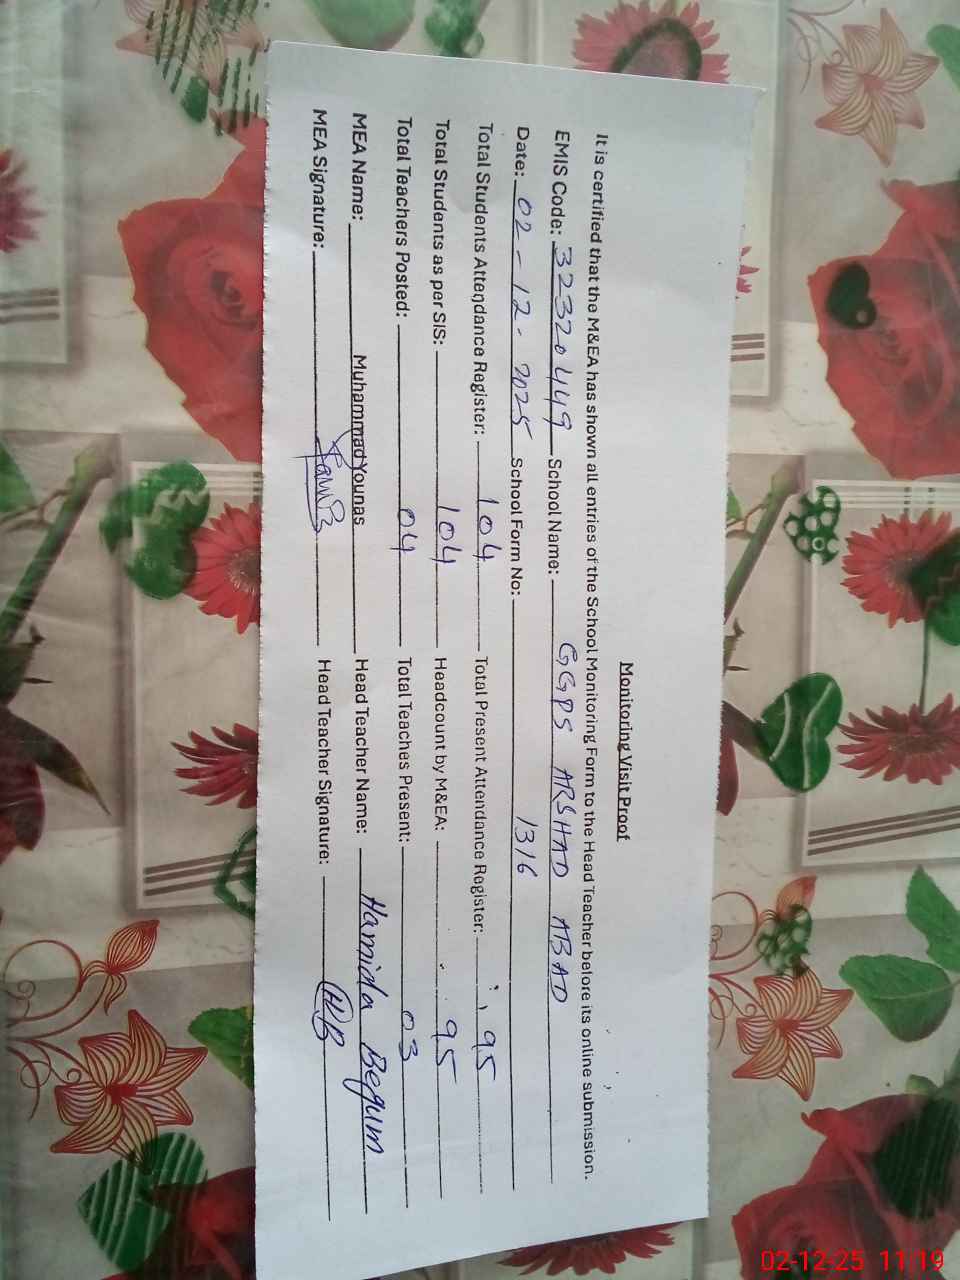 Monitoring Visit Proof
It is certified that the M&EA has shown all entries of the School Monitoring Form to the Head Teacher before its online submission.
EMIS Code: 32320449 School Name: GGPS ARSHAD ABAD
Date: 02-12-2025 School Form No: 1316
Total Students Attendance Register: 104 Total Present Attendance Register: 95
Total Students as per SIS: 104 Headcount by M&EA: 95
Total Teachers Posted: 04 Total Teaches Present: 03
MEA Name: Muhammad Younas Head Teacher Name: Hamida Begum
MEA Signature: Head Teacher Signature: HB
02-12-25 11:19